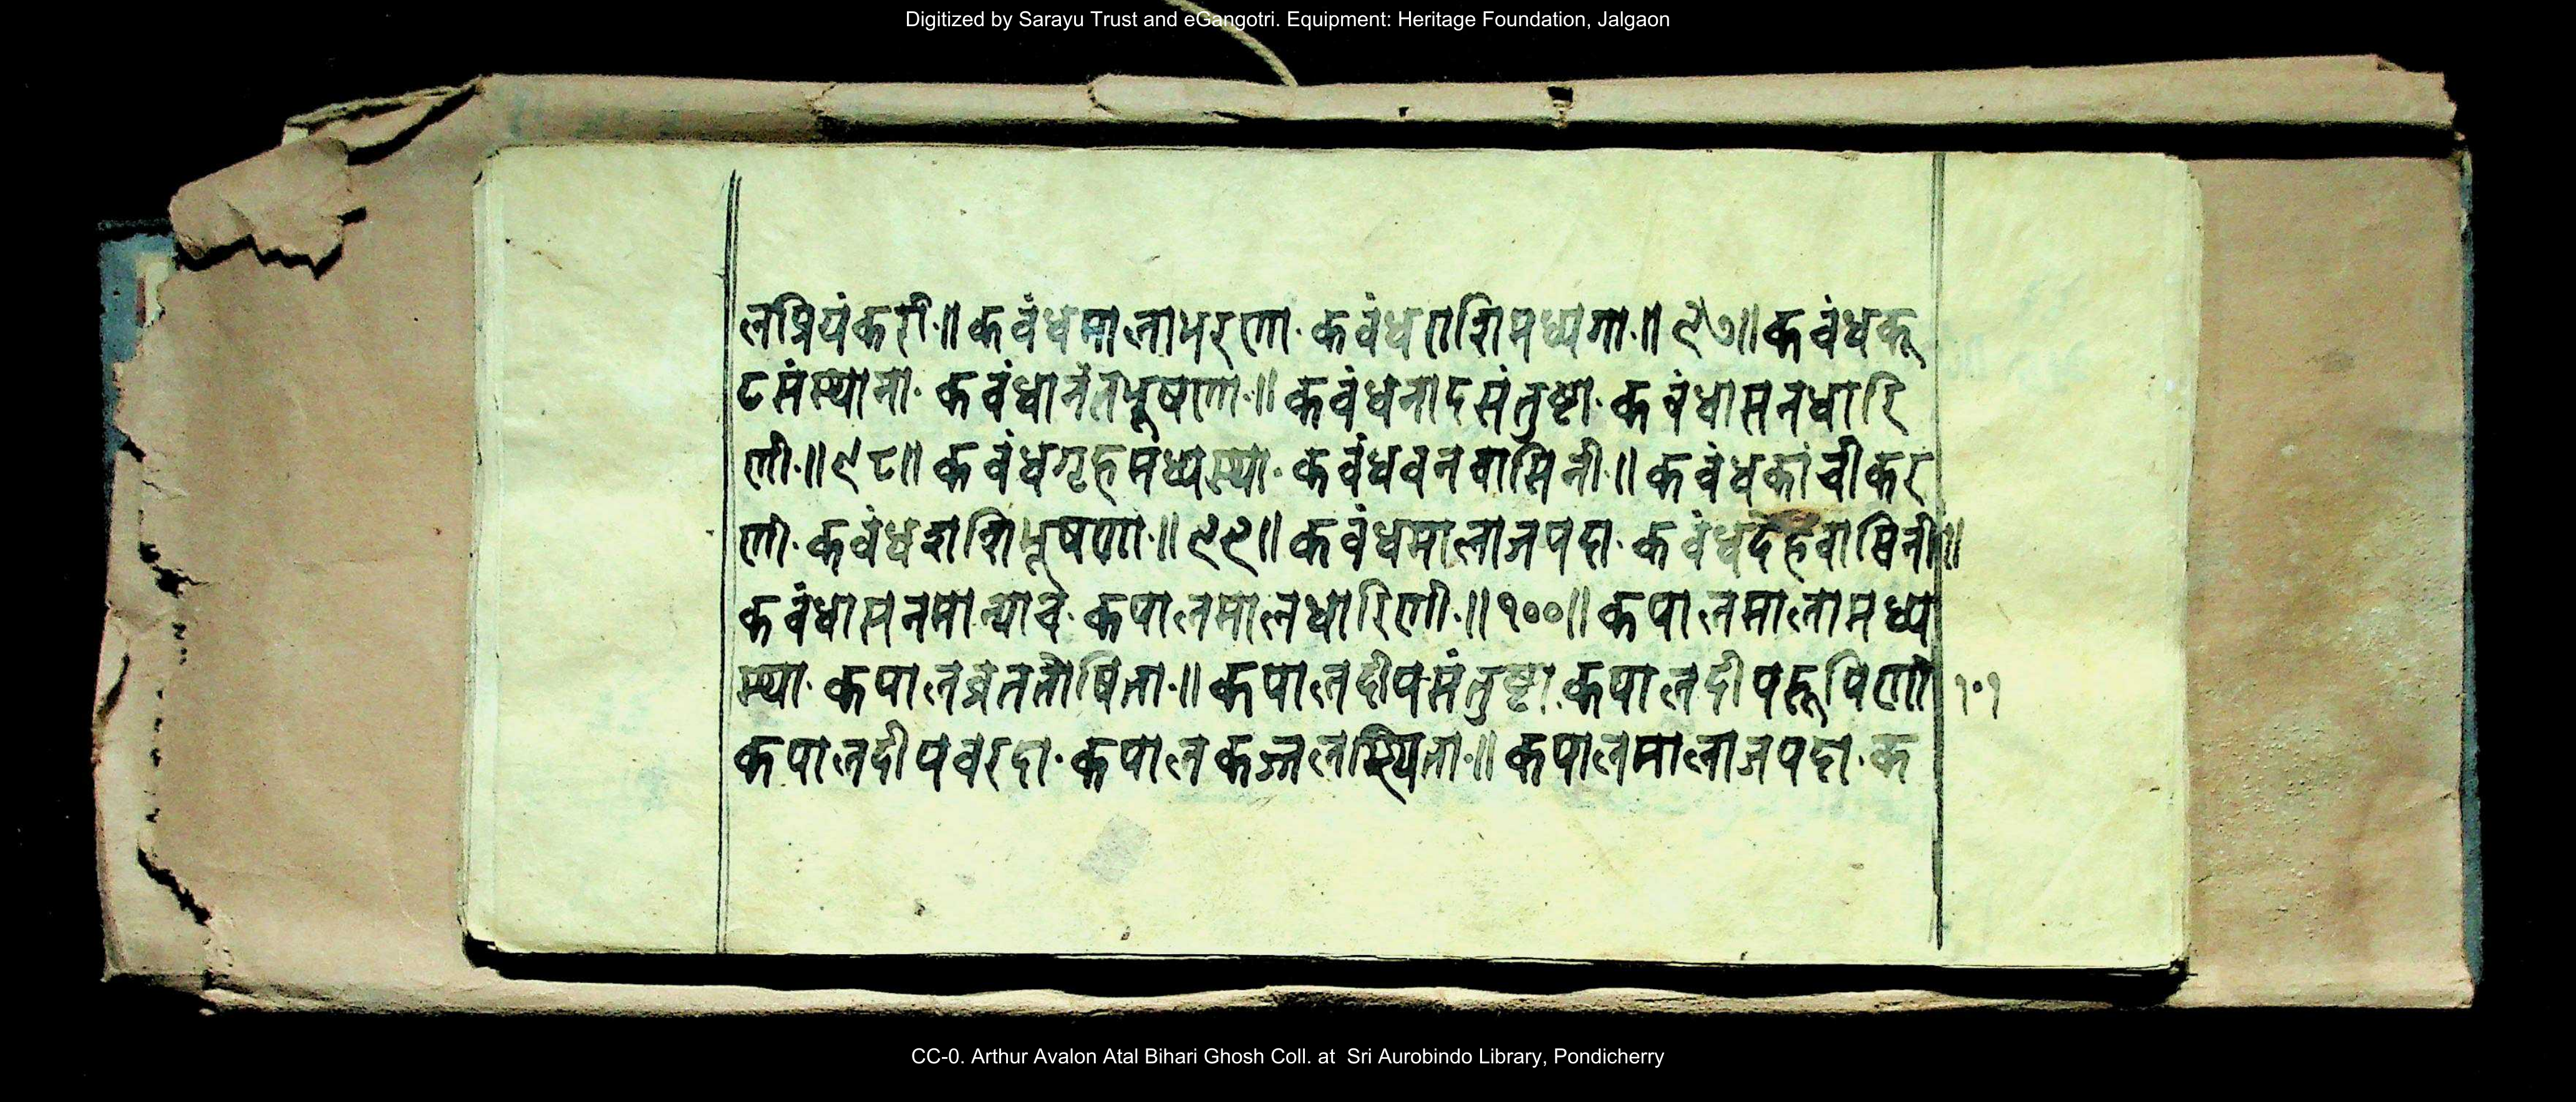 Digitized by Sarayu Trust and eGangotri. Equipment: Heritage Foundation, Jalgaon
लप्रियंकरी॰॥ कवंधमालाभरणा॰ कवंधराशिमध्यगा॰॥ ९७॥ कवंधकू
टसंस्थाना॰ कवंधानंतभूषणा॰॥ कवंधनादसंतुष्टा॰ कवंधासनधारि
णी॰॥ ९८॥ कवंधगृहमध्यस्था॰ कवंधवनवासिनी॰॥ कवंधकांचीकर
णी॰ कवंधराशिभूषणा॰॥ ९९॥ कवंधमालाजपदा॰ कवंधदेहवासिनी॥
कवंधासनमान्याच॰ कपालमालधारिणी॰॥ १००॥ कपालमालामध्य
स्था॰ कपालव्रततोषिता॰॥ कपालदीपसंतुष्टा॰ कपालदीपरूपिणी १०१
कपालदीपवरदा॰ कपालकज्जलस्थिता॰॥ कपालमालाजपदा॰ क
CC-0. Arthur Avalon Atal Bihari Ghosh Coll. at Sri Aurobindo Library, Pondicherry